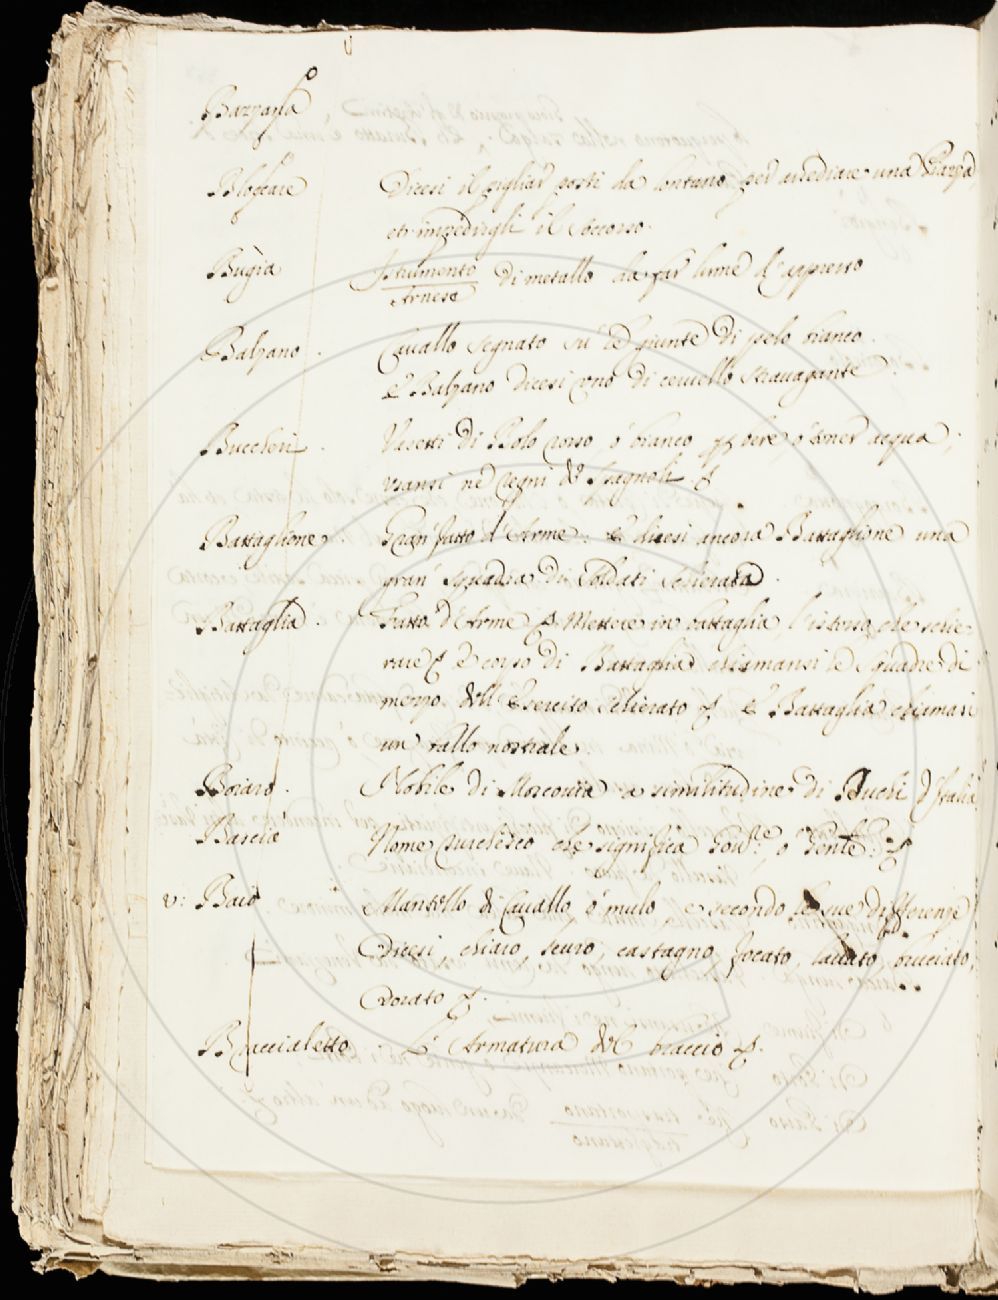 Bazzana
Bloccare Dicesi il pigliar posti da lontano per assediare una Piazza,
et impedirgli il soccorso.
Bugìa Istrumento di metallo da far lume d'appresso
Arnese
Balzano. Cavallo segnato sù le giunte di pelo bianco.
e Balzano dicesi uno di cervello stravagante.
Buccheri. Vasetti di Bolo rosso, ó bianco per bere, o tener acqua,
usansi ne Regni di Spagnoli
Battaglione Gran fatto d'Arme: e dicesi ancora Battaglione una
gran squadra di soldati schierata.
Battaglia. Fatto d'Arme Mettere in battaglia, l'istesso che schie-
rare e corso di Battaglia chiamansi le squadre di
mezzo dell'Esercito schierato e Battaglia chiamasi
un ballo nostrale.
Boiaro. Nobile di Moscovia a similitudine di Duchi d'Italia,
Barcia Nome Turchesco che significa
v: Baio Mantello di Cavallo, ó mulo, e secondo le sue differenze
Dicesi, chiaro, scuro, castagno, focato, lavato, bruciato,
dorato
Braccialetto. L'Armatura del braccio